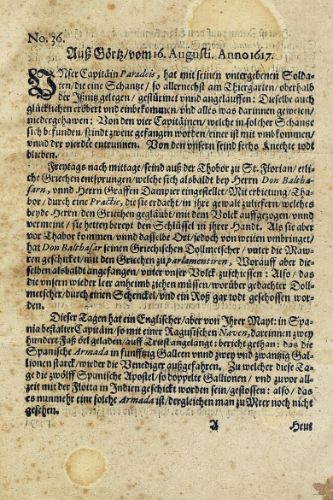 No. 36.
Auß Görtz/vom 16. Augusti. Anno 1617.
UNser Capitäin Paradeis, hat mit seinen untergebenen Solda-
ten/die eine Schantze/so allernechst am Thiergarten/oberhalb
der Isnitz gelegen/gestürmet vnnd angelauffen: Dieselbe auch
glücklichen eröbert vnd einbekommen/vnd alles was darinnen gewesen/
nidergehawen: Von den vier Capitäinen/welche in solcher Schantze
sich befunden/seindt zween gefangen worden/einer ist mit vmbkommen/
vnnd der vierdte entrunnen. Von den vnsern seind sechs Knechte todt
blieben.
Freytags nach mittage/seind auß der Thobor zu St. Florian/etli-
che Griechen entsprungen/welche sich alsobaldt bey Herrn Don Baltha-
sarn, vnnd Herrn Graffen Dampier eingestellet/Mit erbietung/Tha-
bor/durch eine Practic, die sie erdacht/in ihre gewalt zuliefern/welches
beyde Herrn/den Griechen geglaubt/mit dem Volck außgezogen/vnnd
vermeint/sie hetten bereyt den Schlüssel in ihrer Handt. Als sie aber
vor Thabor kommen/vnnd dasselbe Ort/doch von weiten vmbringet/
hat Don Balthasar seinen Griechischen Dollmetscher/vnter die Maw-
ren geschicket/mit den Griechen zu parlamentiren. Worauff aber die-
selben alsobaldt angefangen/vnter vnser Volck zuschiessen: Also/das
die vnsern wieder leer anheimb ziehen müssen/worüber gedachter Doll-
metscher/durch einen Schenckel/vnd ein Roß gar todt geschossen wor-
den.
Dieser Tagen hat ein Englischer/aber von Ihrer Mayt: in Spa-
nia bestalter Capitäin/so mit einer Ragusischen Naven, darinnen zwey
hundert Faß öel geladen/auff Triest angelangt: bericht gethan: das die
Spanische Armada in funfftzig Galleen vnnd zwey vnd zwantzig Gallionen
starck/wieder die Venediger außgefahren. Zu welcher diese Ta-
ge die zwölff Spanische Apostel/so doppelte Gallionen/vnd zuvor all-
zeit mit der Flotta in Indien geschickt worden sein/gestossen: also/das
es nunmehr eine solche Armada ist/dergleichen man zu Meer noch nicht
gesehen.
A Heut